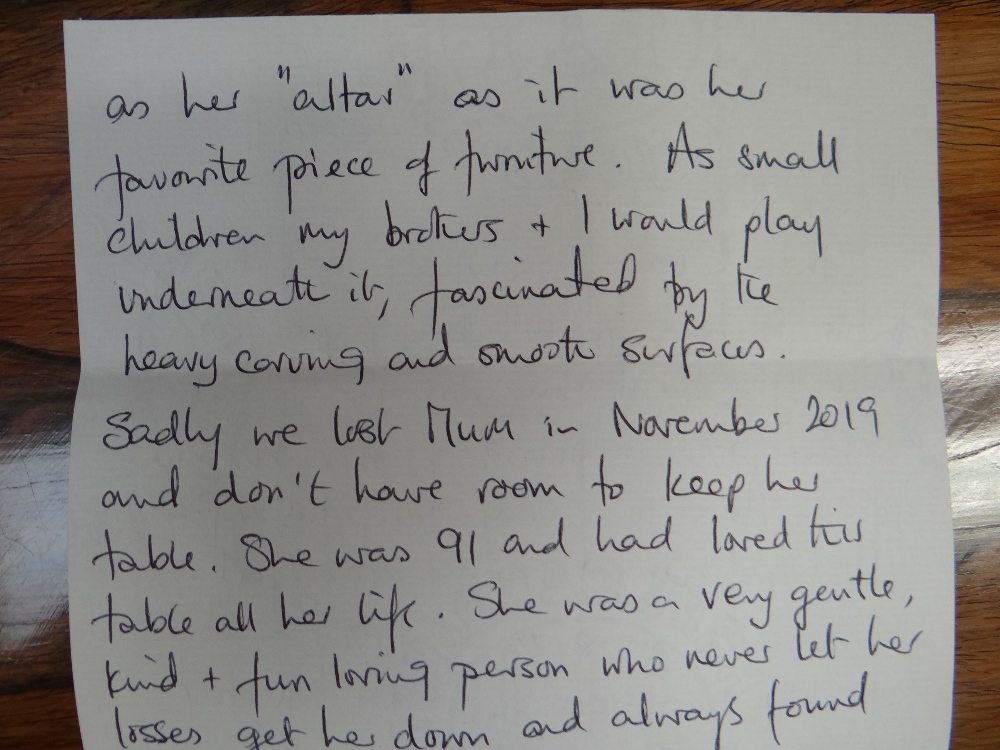 as her "altar" as it was her
favourite piece of furniture. As small
children my brothers + I would play
underneath it, fascinated by the
heavy carving and smooth surfaces.
Sadly we lost Mum in November 2019
and don't have room to keep her
table. She was 91 and had loved this
table all her life. She was a very gentle,
kind + fun loving person who never let her
losses get her down and always found